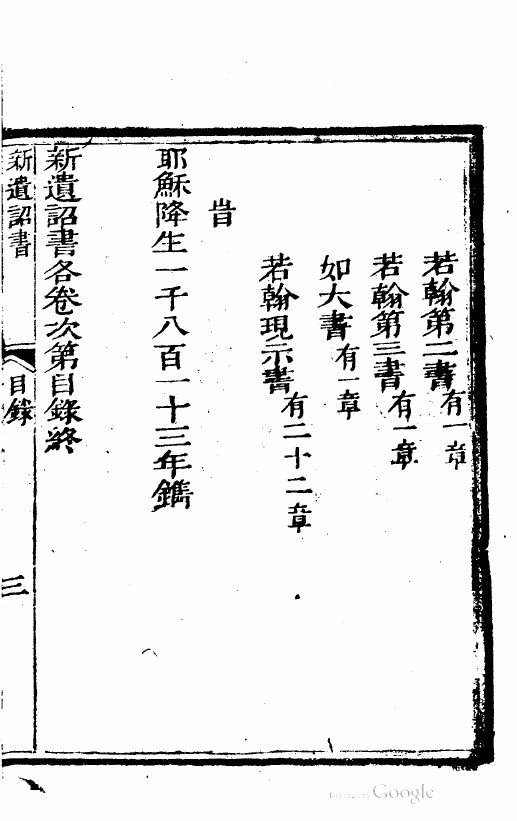 若翰第二書有一章
若翰第三書有一章
如大書有一章
若翰現示書有二十二章
旹
耶穌降生一千八百一十三年鐫
新遺詔書各卷次第目錄終
新遺詔書 目錄 三
Digitized by Google